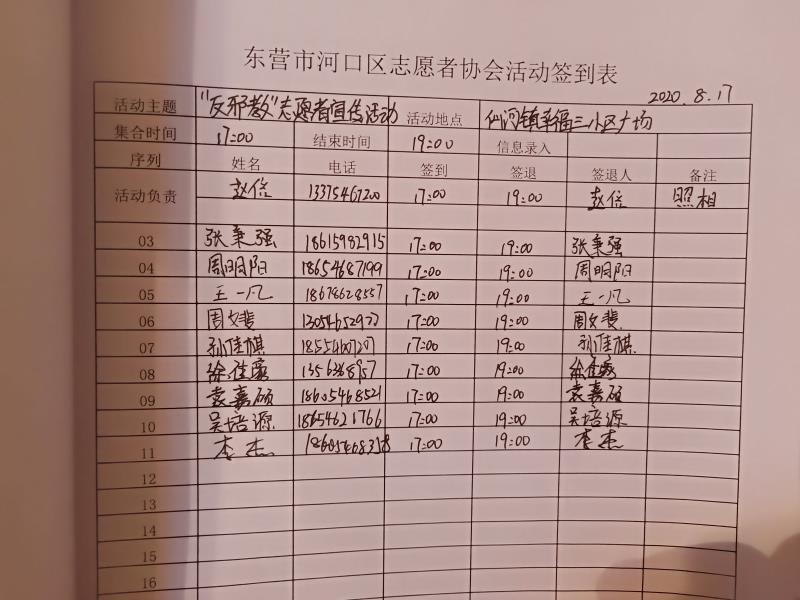 东营市河口区志愿者协会活动签到表
2020.8.17
活动主题 "反邪教"志愿者宣传活动 活动地点 仙河镇幸福三小区广场
集合时间 17:00 结束时间 19:00 信息录入
序列 姓名 电话 签到 签退 签退人 备注
活动负责 赵信 13375467200 17:00 19:00 赵信 照相
03 张秉强 18615982915 17:00 19:00 张秉强
04 周明阳 18654687199 17:00 19:00 周明阳
05 王一凡 18678628557 17:00 19:00 王一凡
06 周文斐 17:00 19:00 周文斐
07 孙佳棋 17:00 19:00 孙佳棋
08 17:00 19:00
09 袁嘉硕 18605468521 17:00 19:00 袁嘉硕
10 吴培源 18654621766 17:00 19:00 吴培源
11 李杰 17:00 19:00 李杰
12
13
14
15
16